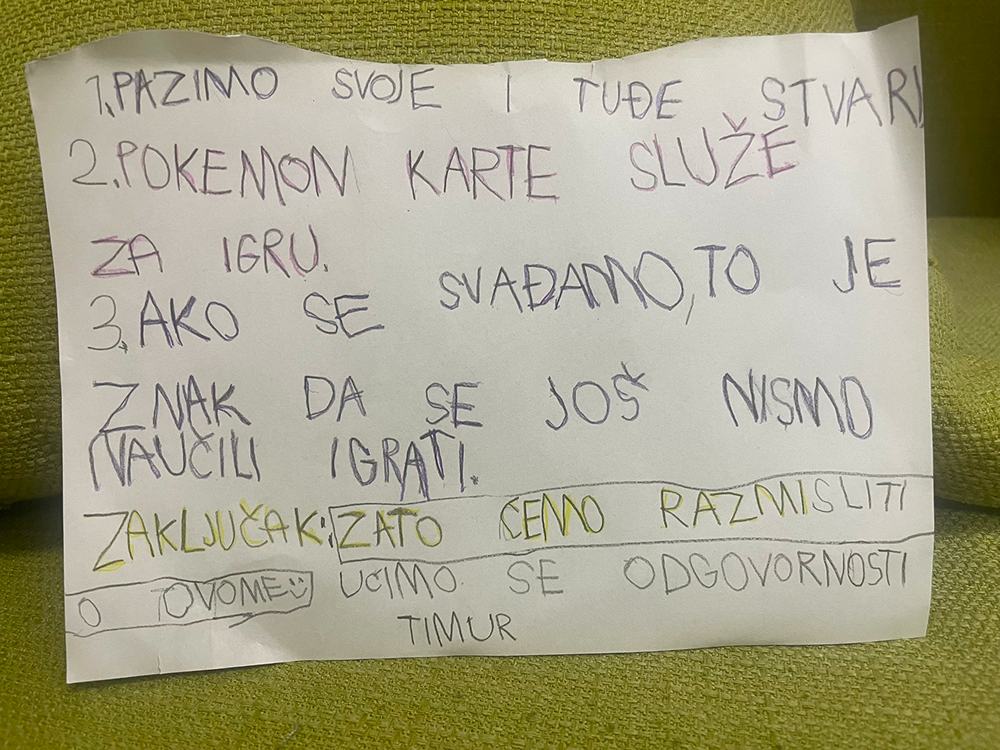 1. PAZIMO SVOJE I TUĐE STVARI
2. POKEMON KARTE SLUŽE
ZA IGRU.
3. AKO SE SVAĐAMO, TO JE
ZNAK DA SE JOŠ NISMO
NAUČILI IGRATI.
ZAKLJUČAK: ZATO ĆEMO RAZMISLITI
O OVOME☺ UČIMO SE ODGOVORNOSTI
TIMUR